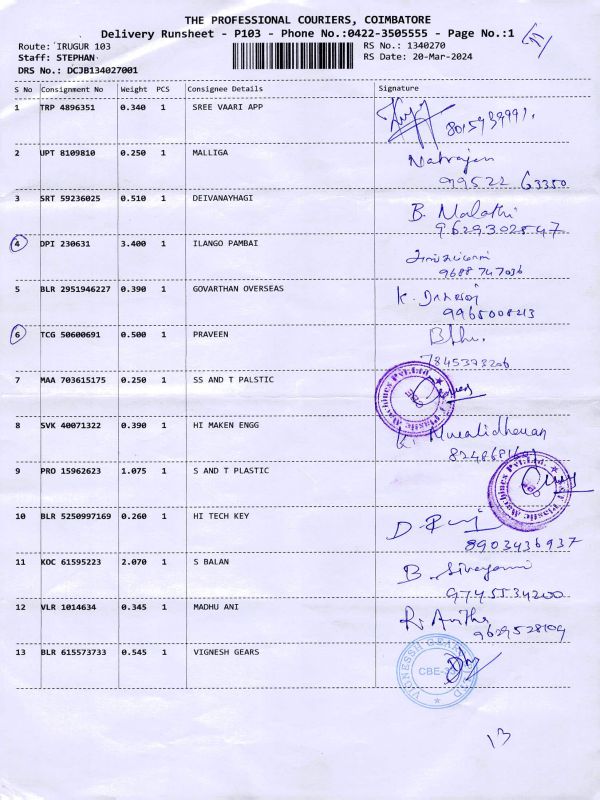 THE PROFESSIONAL COURIERS, COIMBATORE
Delivery Runsheet - P103 - Phone No.:0422-3505555 - Page No.:1
Route: IRUGUR 103 RS No.: 1340270
Staff: STEPHAN RS Date: 20-Mar-2024
DRS No.: DCJB134027001
S No Consignment No Weight PCS Consignee Details Signature
1 TRP 4896351 0.340 1 SREE VAARI APP
2 UPT 8109810 0.250 1 MALLIGA Natrajan
99522 63350
3 SRT 59236025 0.510 1 DEIVANAYHAGI B. Malathi
9629302847
4 DPI 230631 3.400 1 ILANGO PAMBAI
9688747036
5 BLR 2951946227 0.390 1 GOVARTHAN OVERSEAS K.
9965008213
6 TCG 50600691 0.500 1 PRAVEEN
7845373206
7 MAA 703615175 0.250 1 SS AND T PALSTIC
8 SVK 40071322 0.390 1 HI MAKEN ENGG K. Muralidharan
9 PRO 15962623 1.075 1 S AND T PLASTIC
10 BLR 5250997169 0.260 1 HI TECH KEY
8903436937
11 KOC 61595223 2.070 1 S BALAN B.
9745534200
12 VLR 1014634 0.345 1 MADHU ANI R. Anitha
9629528109
13 BLR 615573733 0.545 1 VIGNESH GEARS
CBE-
13